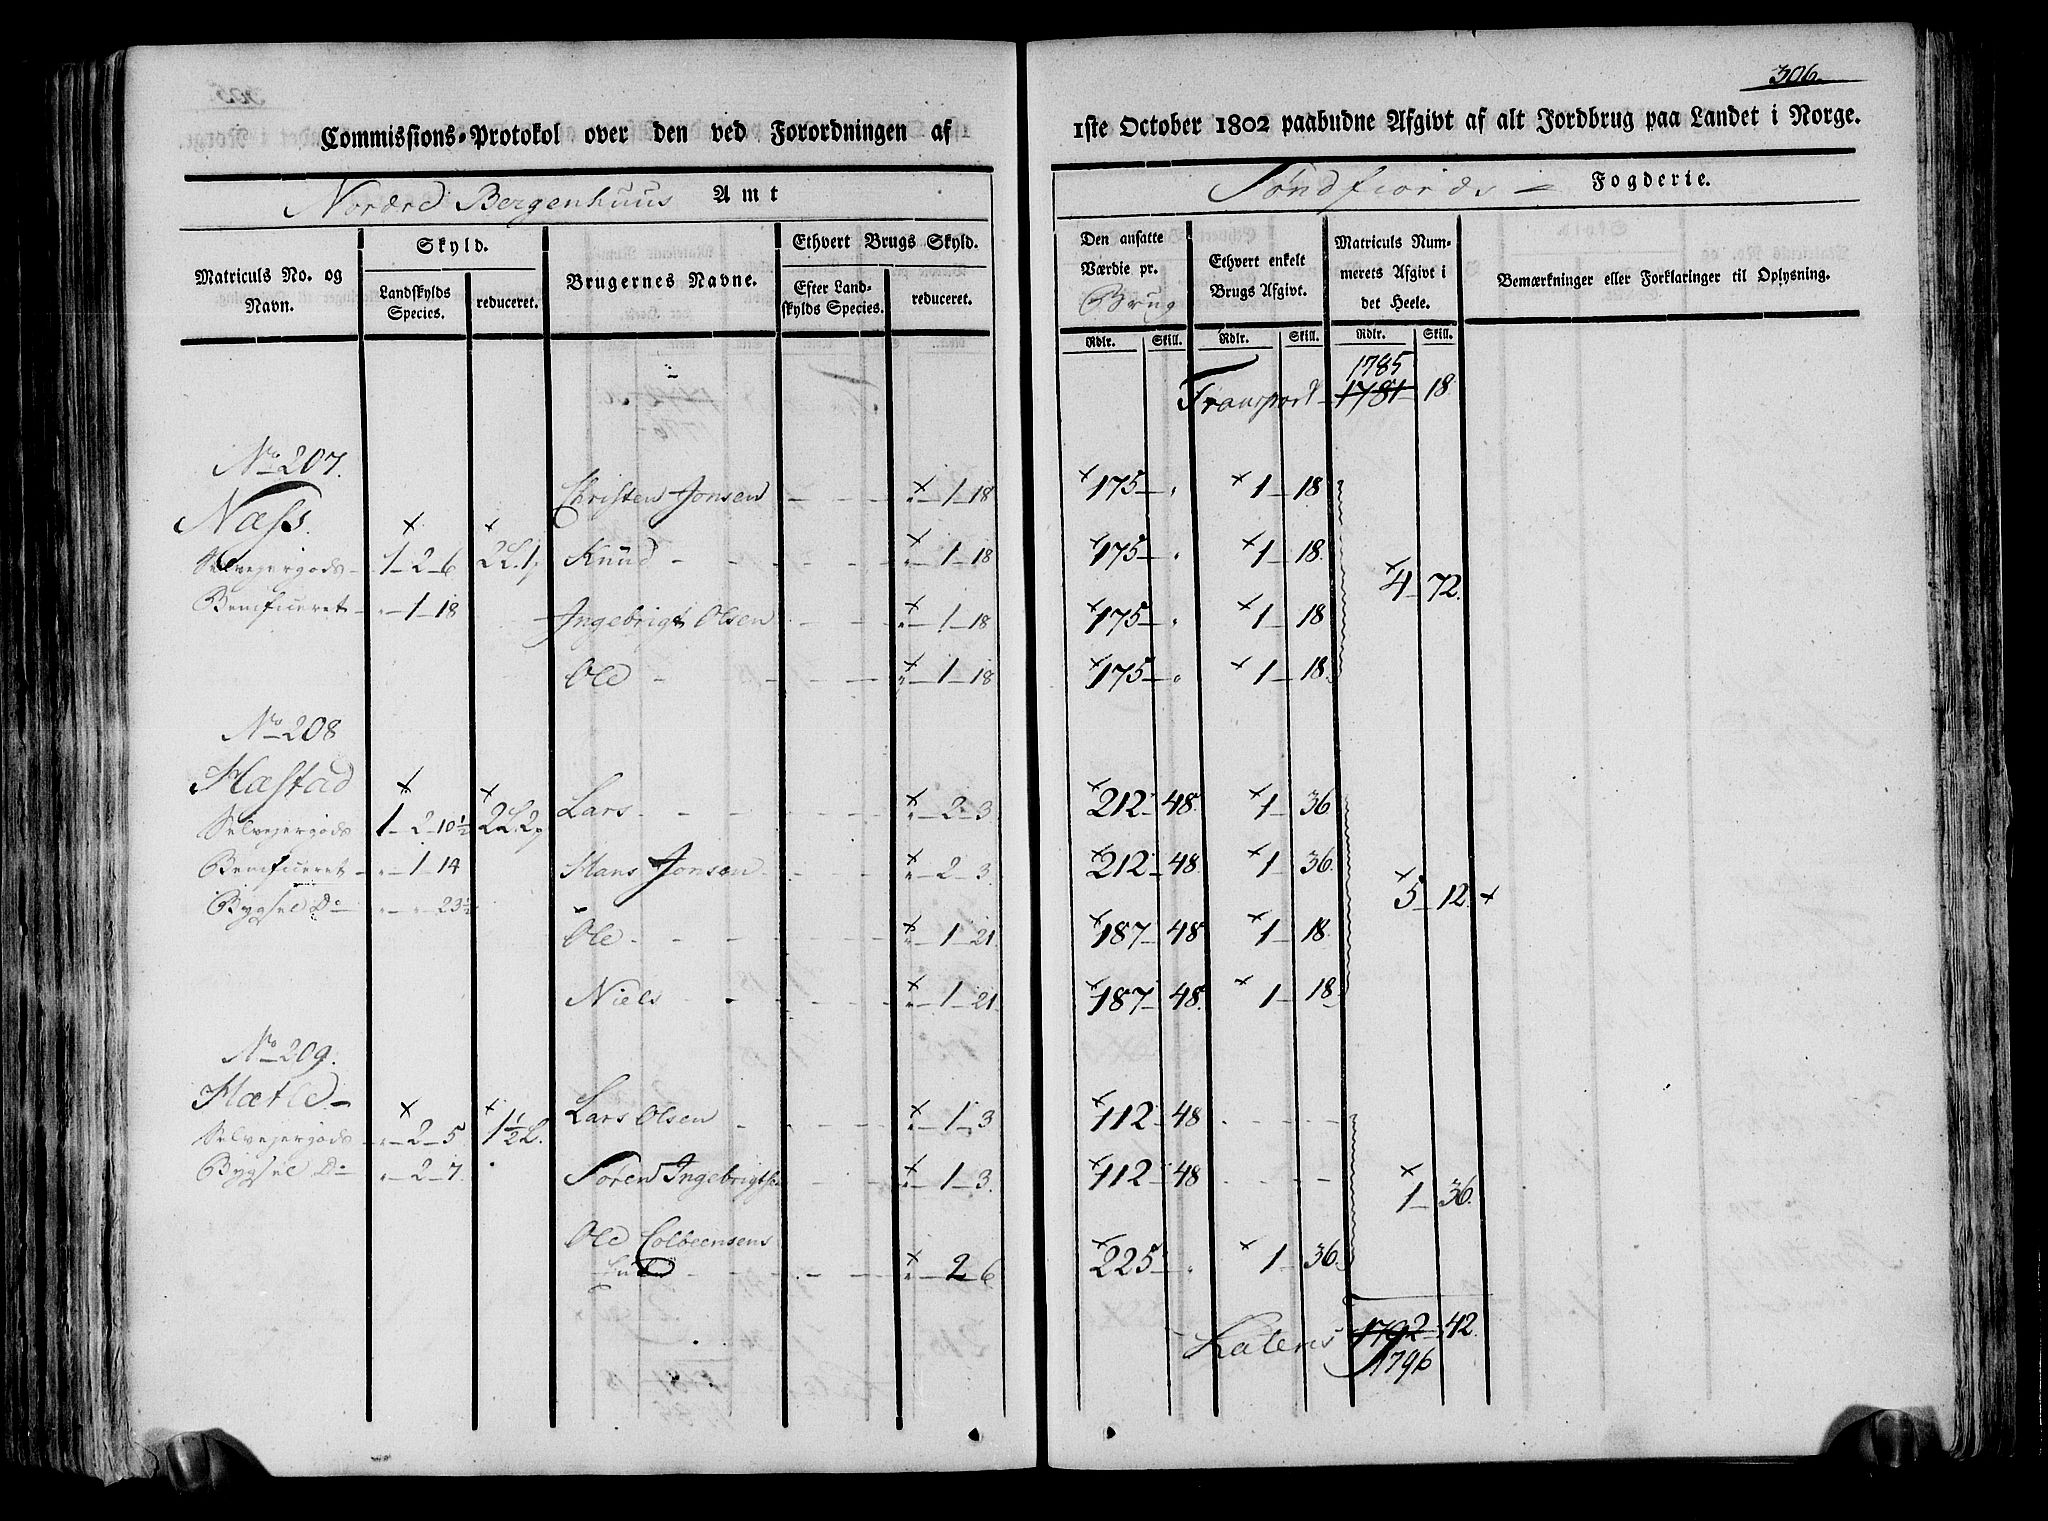 306.
Commissions-Protokol over den ved Forordningen af 1ste October 1802 paabudne Afgivt af alt Jordbrug paa Landet i Norge.
Nordre Bergenhuus Amt
Søndfiords Fogderie.
Matriculs No. og Navn.
Skyld.
Landskylds Species.
reduceret.
Brugernes Navne.
Ethvert Brugs Skyld.
Efter Landskylds Species.
reduceret.
Den ansatte Værdie pr. Brug
Ethvert enkelt Brugs Afgivt.
Matriculs Nummerets Afgivt i det Heele.
Bemærkninger eller Forklaringer til Oplysning.
Rdlr. Skill. Rdlr. Skill. Rdlr. Skill.
1785
Transport 1781 18
No 207.
Christen Jonsen - - " 1 18 175 " 1 18
Næss.
Selvejergods 1 2 6 2L. 1 Knud - - " 1 18 175 " 1 18.
4 72.
Benificeret " 1 18 Ingebrigt Olsen - - " 1 18 175 " 1 18
Ole - - " 1 18 175 " 1 18.
No 208
Hæstad
Selvejergods 1 2 10½ 2L. 2 Lars - - " 2 3 212 48. 1 36
Benificeret " 1 14 Hans Jonsen - - " 2 3. 212 48. 1 36.
5 12.
Bygsel Do " " 23½ Ole - - " 1 21 187 48 1 18
Niels - - " 1 21 187 48. 1 18
No 209.
Hætle
Selvejergods " 2 5 1½ L. Lars Olsen - - " 1 3 112 48
Bygsel Do " 2 7 Søren Ingebrigtsen - - " 1 3. 112 48
1 36.
Ole Colbeensens
- - " 2 6 225 " 1 36.
Lateris 1792 42
1796